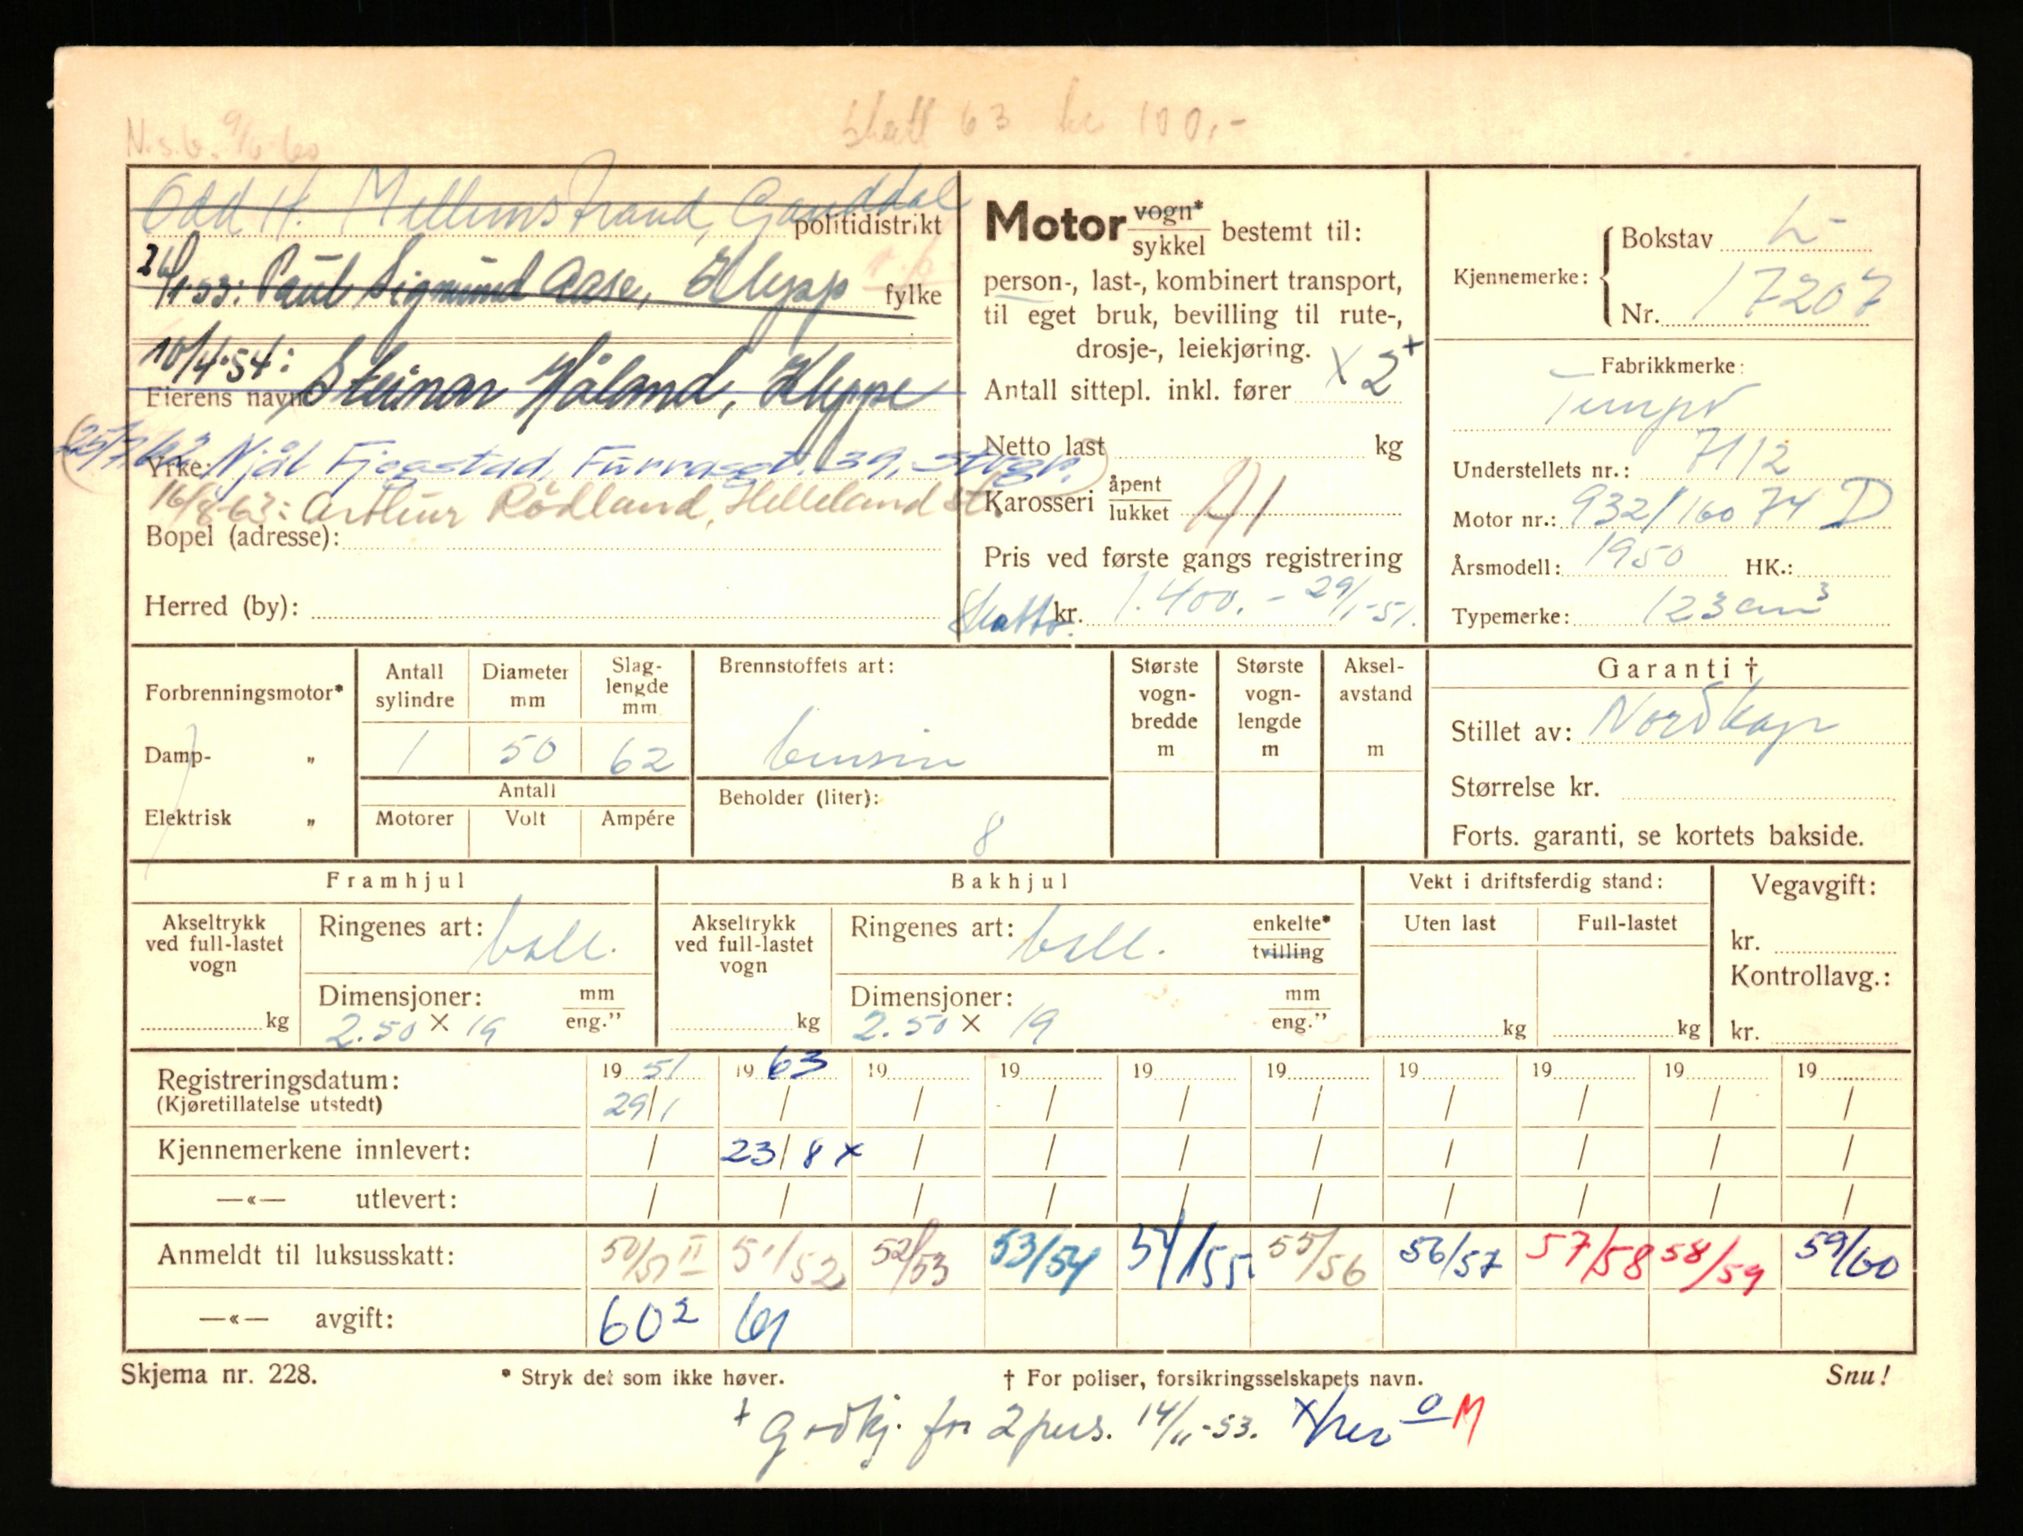 N.s.b. 9/6-60
skatt 63 kr 100,-
Odd H. Mellemstrand, Ganddal
politidistrikt
26/1-53: Paul Sigmund Aase, Klepp
fylke
10/4-54: Steinar Håland, Kleppe
Eierens navn
Yrke: Njål Fjogstad,
16/8-63: Arthur Rødland, Helleland st.
Bopel (adresse):
Herred (by):
Motor vogn* sykkel bestemt til:
person-, last-, kombinert transport,
til eget bruk, bevilling til rute-,
drosje-, leiekjøring.
Antall sittepl. inkl. fører x 2+
Netto last kg
Karosseri åpent lukket A1
Pris ved første gangs registrering
Skattb. kr. 1.400.- 29/1-51.
Kjennemerke: Bokstav L-
Nr. 17207
Fabrikkmerke:
Tempo
Understellets nr.: 7112
Motor nr.: 932/16074 D
Årsmodell: 1950 HK.:
Typemerke: 123 cm3
Forbrenningsmotor*
Damp- „
Elektrisk „
Antall sylindre Diameter mm Slag-lengde mm
1 50 62
Antall
Motorer Volt Ampére
Brennstoffets art:
bensin
Beholder (liter):
8
Største vogn-bredde m
Største vogn-lengde m
Aksel-avstand m
Garanti †
Stillet av: Nordkap
Størrelse kr.
Forts. garanti, se kortets bakside.
Framhjul
Akseltrykk ved full-lastet vogn
kg
Ringenes art: ball.
Dimensjoner: mm eng."
2.50 x 19
Bakhjul
Akseltrykk ved full-lastet vogn
kg
Ringenes art: ball. enkelte* tvilling
Dimensjoner: mm eng."
2.50 x 19
Vekt i driftsferdig stand:
Uten last Full-lastet
kg kg
Vegavgift:
kr.
Kontrollavg.:
kr.
Registreringsdatum: 19 51 19 63 19 19 19 19 19 19 19 19
(Kjøretillatelse utstedt) 29/1 / / / / / / / / /
Kjennemerkene innlevert: / 23/8 x / / / / / / / /
—«— utlevert: / / / / / / / / / /
Anmeldt til luksusskatt: 50/51 II 51/52 52/53 53/54 54/55 55/56 56/57 57/58 58/59 59/60
—«— avgift: 60 2 61
Skjema nr. 228.
* Stryk det som ikke høver.
† For poliser, forsikringsselskapets navn.
Snu!
+ godkj. for 2 pers. 14/11-53. M